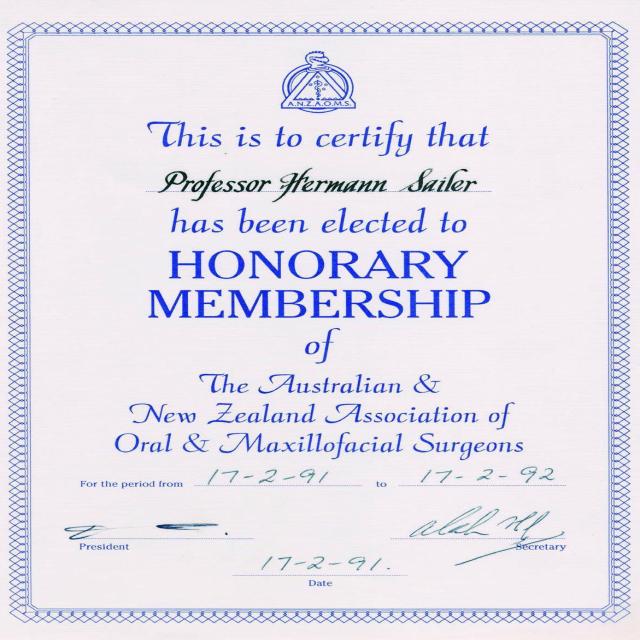 A.N.Z.A.O.M.S.
This is to certify that
Professor Hermann Sailer
has been elected to
HONORARY
MEMBERSHIP
of
The Australian &
New Zealand Association of
Oral & Maxillofacial Surgeons
For the period from 17-2-91 to 17-2-92
President
Secretary
17-2-91.
Date